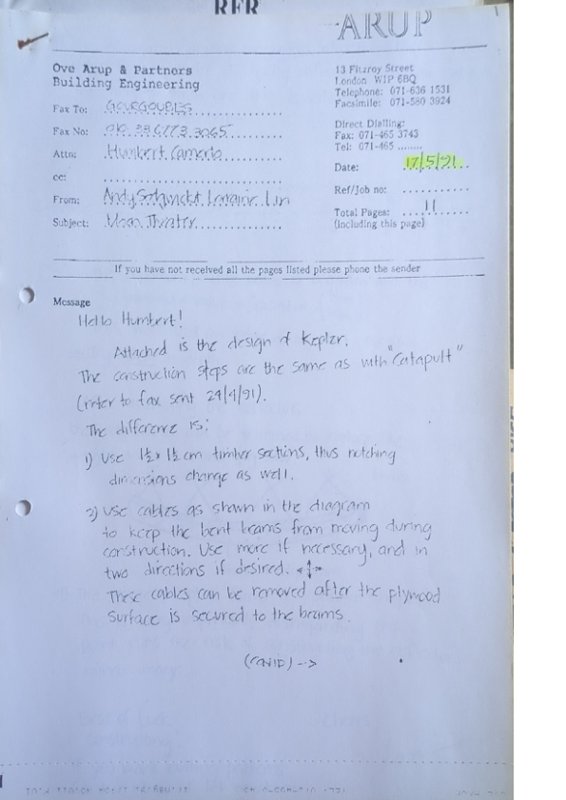 RFR
ARUP
Ove Arup & Partners
Building Engineering
13 Fitzroy Street
London W1P 6BQ
Telephone: 071-636 1531
Facsimile: 071-580 3924
Direct Dialling:
Fax: 071-465 3743
Tel: 071-465 ........
Fax To:
Fax No:
Attn: Humbert
cc:
From: Andy
Subject: Moon Theater
Date: 17/5/91
Ref/Job no: ..........
Total Pages: 11
(including this page)
If you have not received all the pages listed please phone the sender
Message
Hello Humbert!
Attached is the design of Kepler.
The construction steps are the same as with "Catapult"
(refer to fax sent 29/4/91).
The difference is:
1) Use 1½ x 1½ cm timber sections, thus notching
dimensions change as well.
2) Use cables as shown in the diagram
to keep the bent beams from moving during
construction. Use more if necessary, and in
two directions if desired.
These cables can be removed after the plywood
surface is secured to the beams.